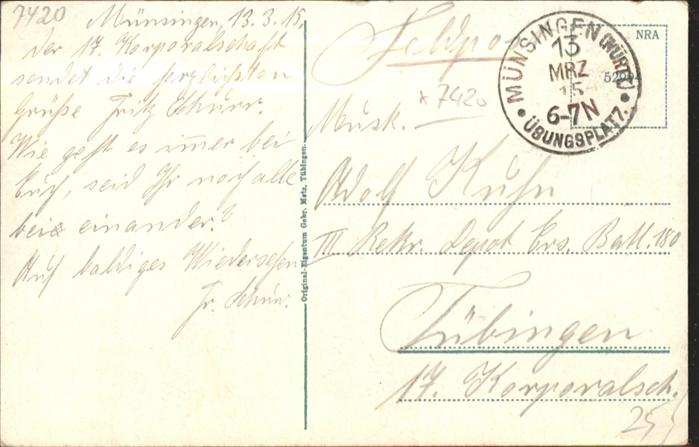 7420
Münsingen, 13.3.15.
Der 17. Korporalschaft
sendet die herzlichsten
Grüße Fritz Schurr.
Wie geht es immer bei
Euch, seid Ihr noch alle
bei einander?
Auf baldiges Wiedersehen
Fr. Schurr.
Original-Eigentum Gebr. Metz, Tübingen.
Feldpost
MÜNSINGEN (WÜRTT.)
13
MRZ
15
6-7N
ÜBUNGSPLATZ.
NRA
520
*7420
Musk.
Adolf Kuhn
III Rekr. Depot Ers. Batl. 180
Tübingen
17. Korporalsch.
25